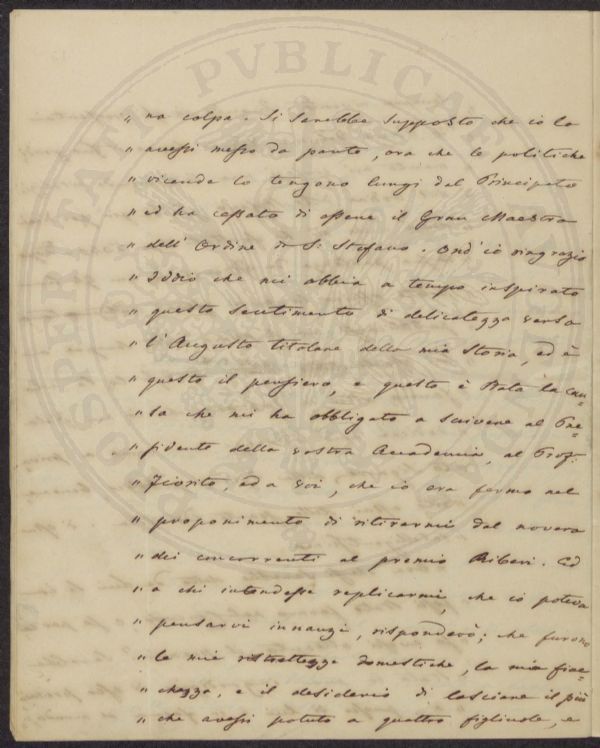 „ na colpa. Si sarebbe supposto che io lo
„ avessi messo da parte, ora che le politiche
„ vicende lo tengono lungi dal Principato
„ ed ha cessato di essere il Gran Maestro
„ dell' Ordine di S. Stefano. Ond' io ringrazio
„ Iddio che mi abbia a tempo inspirato
„ questo sentimento di delicatezza verso
„ l' Augusto titolare della mia Storia, ed è
„ questo il pensiero, e questo è stata la cau=
„ sa che mi ha obbligato a scrivere al Pre=
„ sidente della vostra Accademia, al Prof.
„ Fiorito, ed a voi, che io era fermo nel
„ proponimento di ritirarmi dal novero
„ dei concorrenti al premio Riberi. Ed
„ a chi intendesse replicarmi, che io poteva
„ pensarvi innanzi, risponderò; che furono
„ le mie ristrettezze domestiche, la mia fiac=
„ chezza, e il desiderio di lasciare il più
„ che avessi potuto a quattro figliuole, e
PVBLICAE